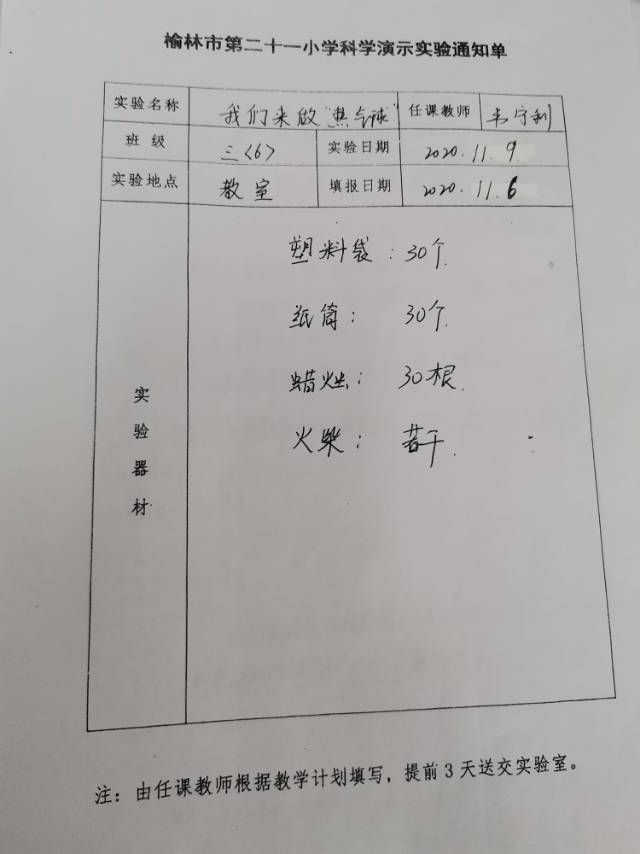 榆林市第二十一小学科学演示实验通知单
实验名称 我们来做"热气球" 任课教师 宁利
班 级 三〈6〉 实验日期 2020.11.9
实验地点 教室 填报日期 2020.11.6
实验器材
塑料袋：30个.
纸筒： 30个.
蜡烛： 30根.
火柴： 若干.
注：由任课教师根据教学计划填写，提前3天送交实验室。